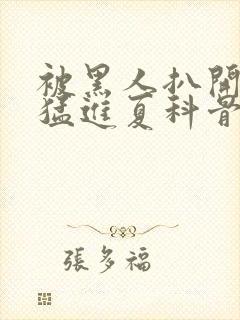 被黑人扒開
猛進夏科黃
張多福